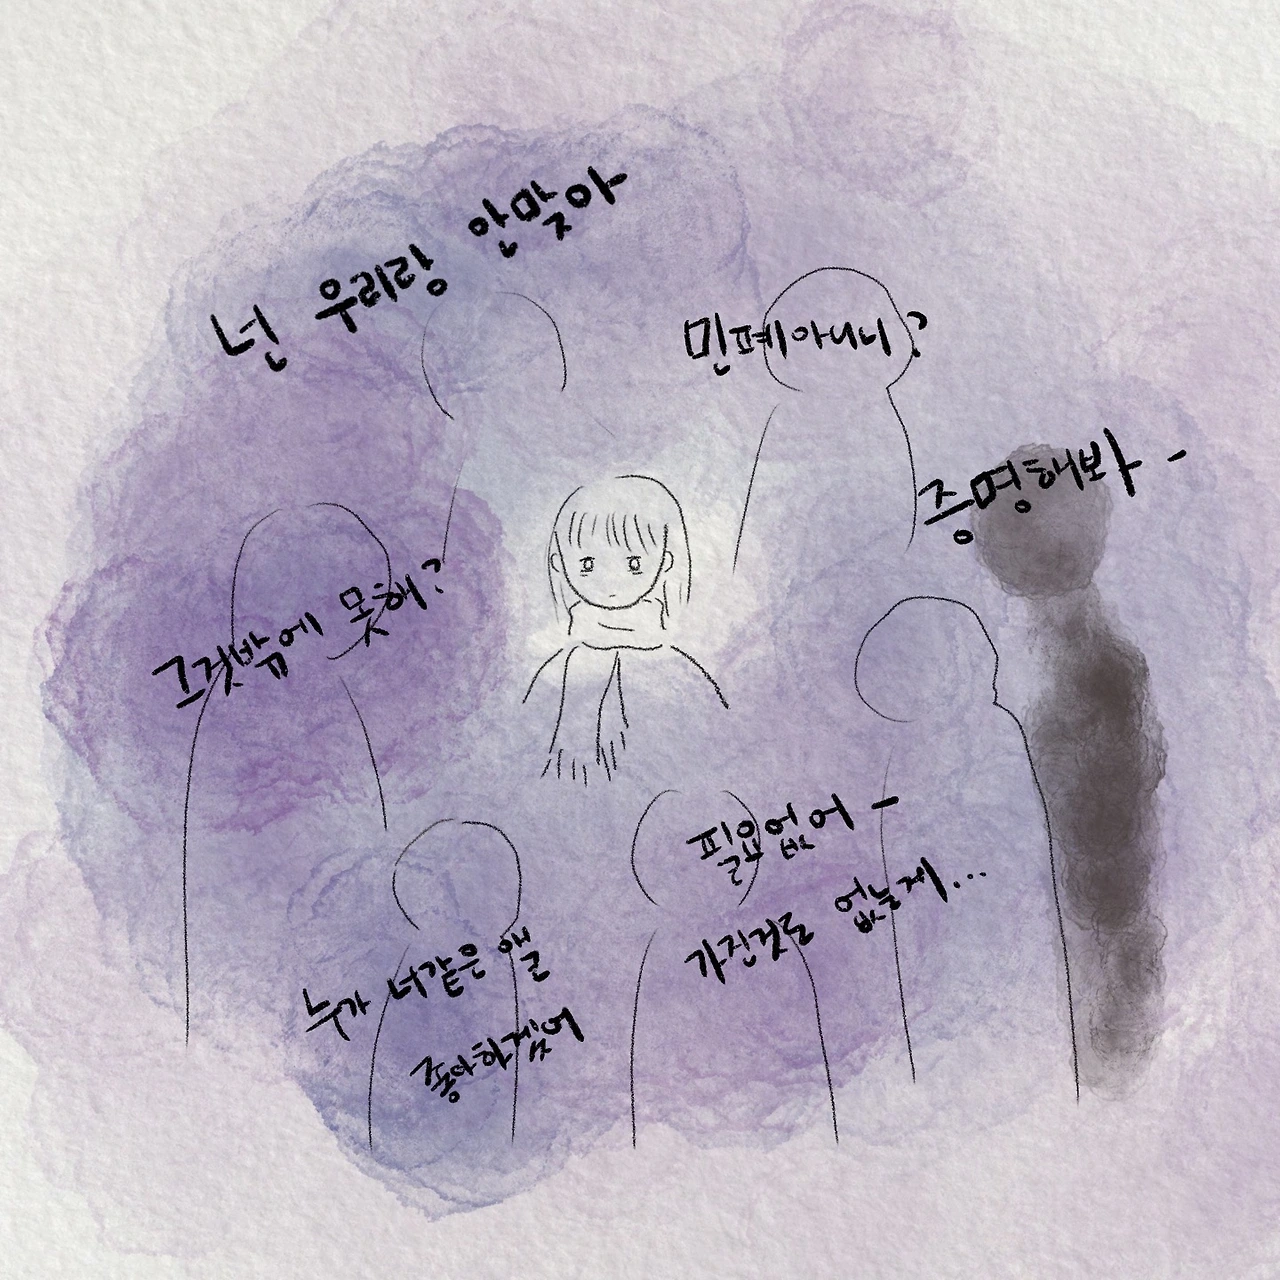 넌 우리랑 안맞아
민폐아니니?
증명해봐 -
그것밖에 못해?
필요없어 -
가진것도 없는게...
누가 너같은 앨
좋아하겠어